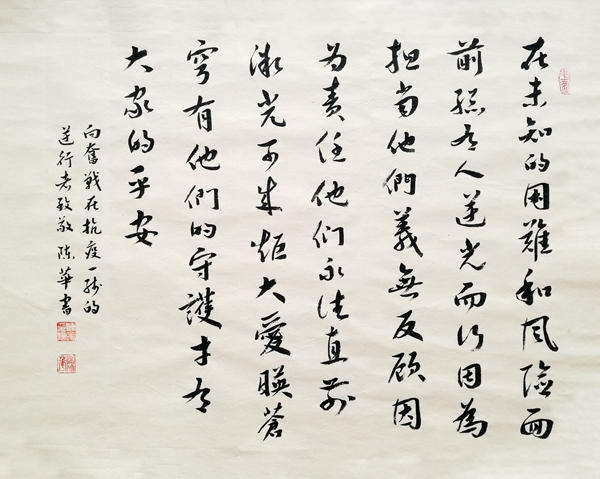 在未知的困難和风险面
前總有人逆光而行因為
担当他們義無反顾因
为责任他们永往直前
微光可成炬大愛暎蒼
穹有他們的守護才有
大家的平安
向奮戰在抗疫一線的
逆行者致敬 陈華書